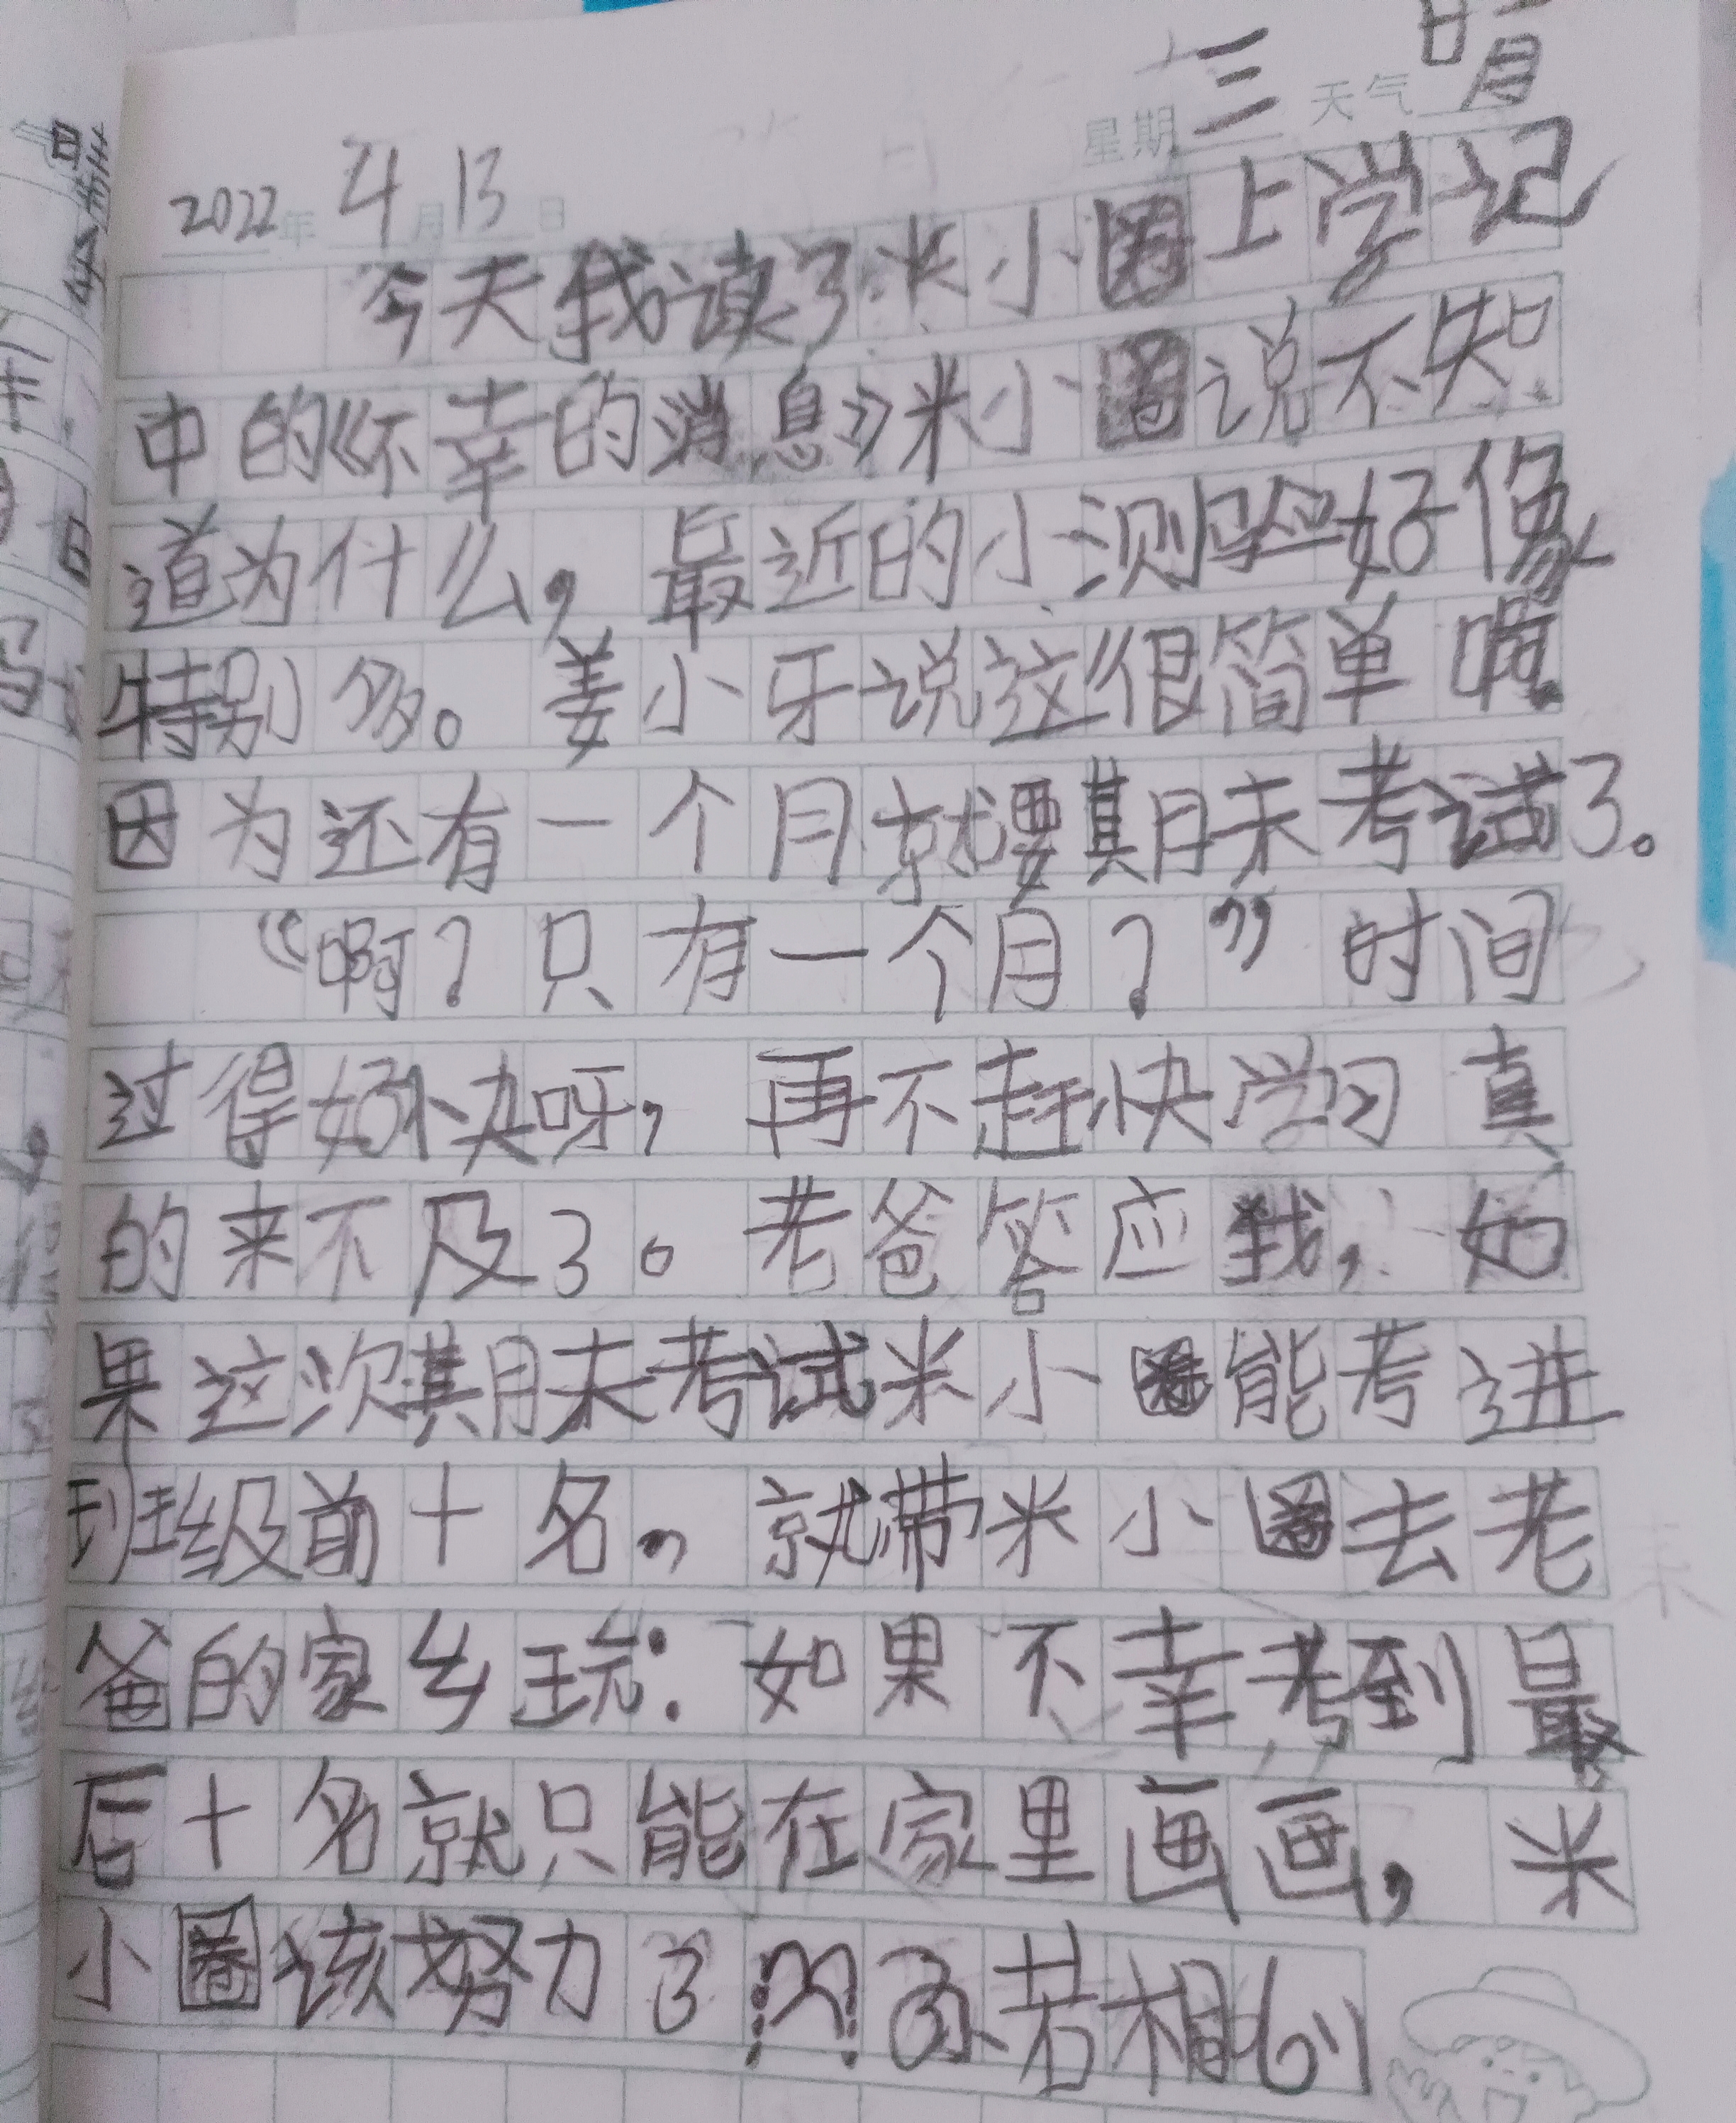 星期三 天气晴
2022年4月13日
今天我读了米小圈上学记
中的《不幸的消息》米小圈说不知
道为什么，最近的小测验好像
特别多。姜小牙说这很简单啊。
因为还有一个月就要期末考试了。
“啊？只有一个月？”时间
过得好快呀，再不赶快学习真
的来不及了。老爸答应我，如
果这次期末考试米小圈能考进
班级前十名，就带米小圈去老
爸的家乡玩：如果不幸考到最
后十名就只能在家里画画，米
小圈该努力了